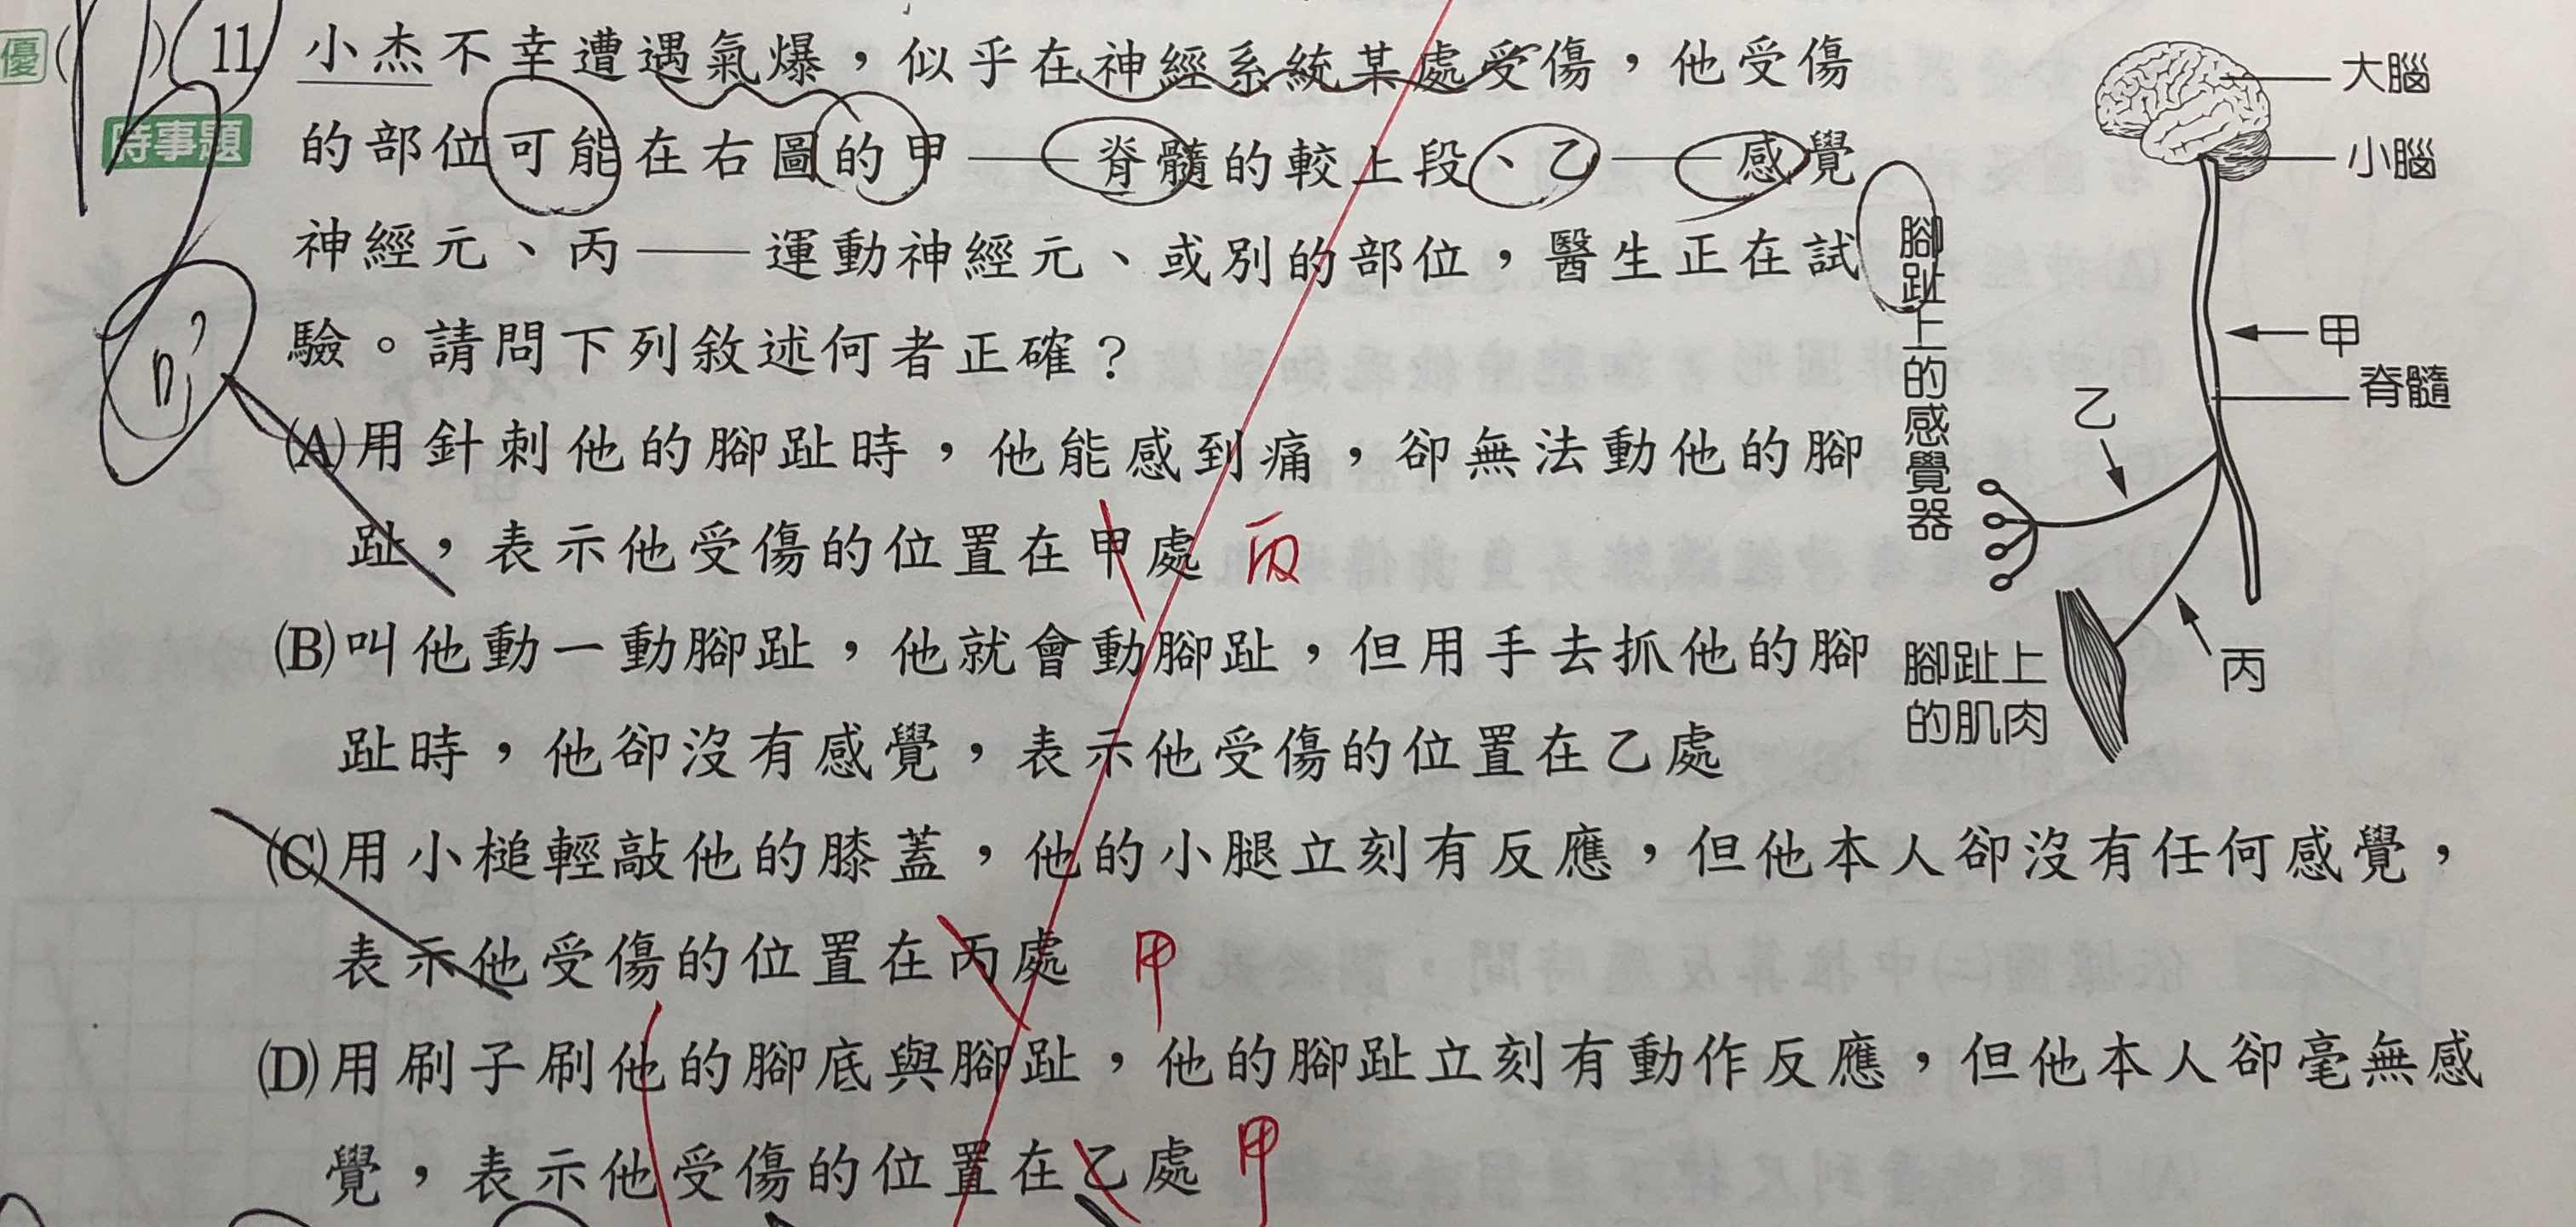 優( )11 小杰不幸遭遇氣爆，似乎在神經系統某處受傷，他受傷
時事題 的部位可能在右圖的甲——脊髓的較上段、乙——感覺
神經元、丙——運動神經元、或別的部位，醫生正在試
驗。請問下列敘述何者正確？
(A)用針刺他的腳趾時，他能感到痛，卻無法動他的腳
趾，表示他受傷的位置在甲處 丙
(B)叫他動一動腳趾，他就會動腳趾，但用手去抓他的腳
趾時，他卻沒有感覺，表示他受傷的位置在乙處
(C)用小槌輕敲他的膝蓋，他的小腿立刻有反應，但他本人卻沒有任何感覺，
表示他受傷的位置在丙處 甲
(D)用刷子刷他的腳底與腳趾，他的腳趾立刻有動作反應，但他本人卻毫無感
覺，表示他受傷的位置在乙處 甲
大腦
小腦
甲
脊髓
乙
腳趾上的感覺器
腳趾上
的肌肉
丙